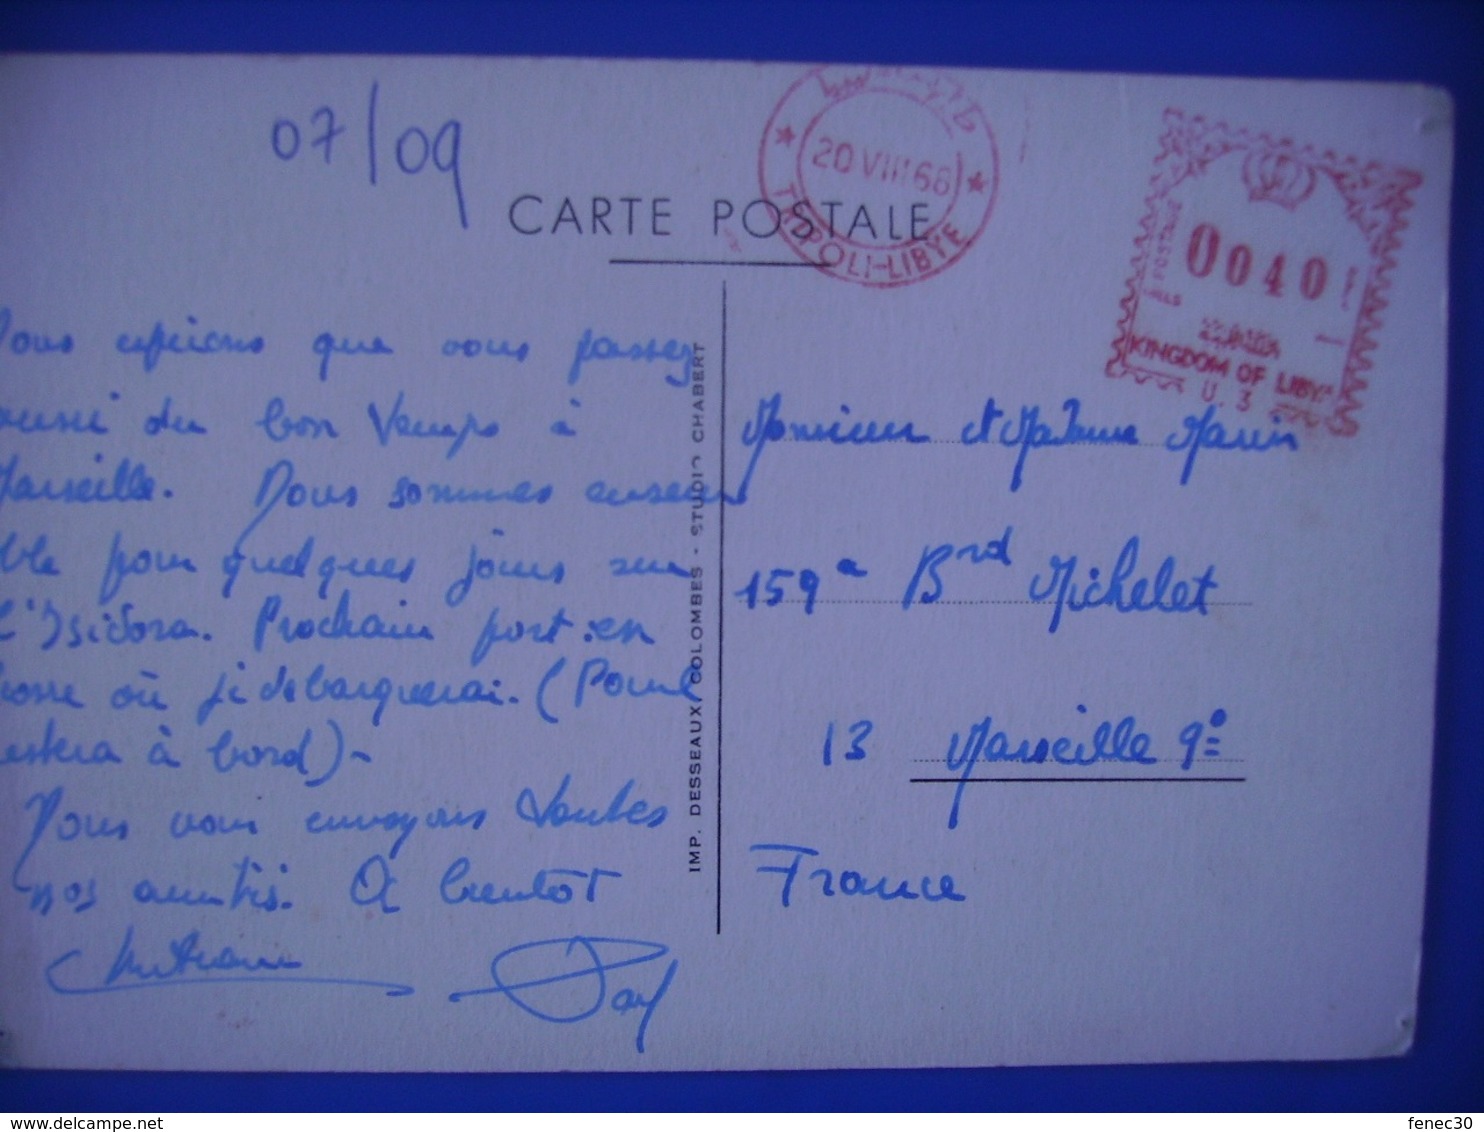 07/09
CARTE POSTALE
20 VIII 66
TRIPOLI-LIBYE
POSTAGE
0040
KINGDOM OF LIBYA
U. 3
Nous espérons que vous passez
aussi du bon temps à
Marseille. Nous sommes ensem
ble pour quelques jours sur
l'Isidora. Prochain port : en
où je débarquerai. (Paul
restera à bord) -
Nous vous envoyons toutes
nos amitiés. A bientôt
Paul
IMP. DESSEAUX, COLOMBES - STUDIO CHABERT
Monsieur et Madame Marin
159 a Brd Michelet
13 Marseille 9e
France
fenec30